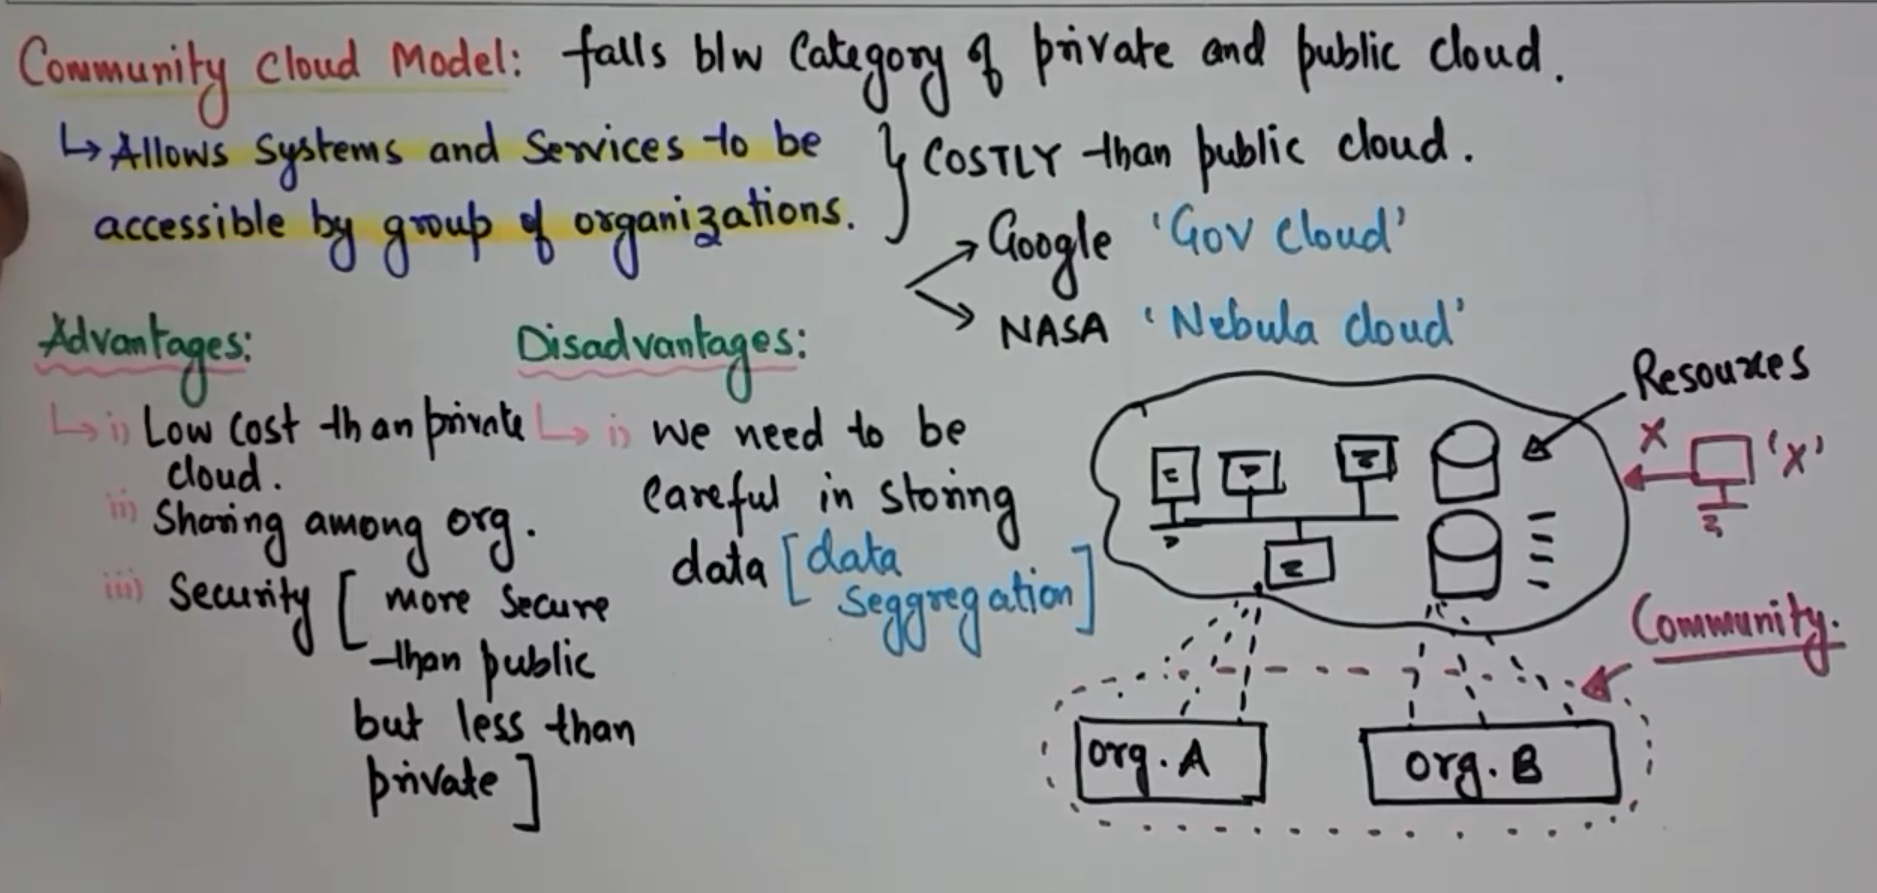 Community Cloud Model: falls b/w Category of private and public cloud.
↳ Allows Systems and Services to be
accessible by group of organizations.
} COSTLY than public cloud.
→ Google 'Gov Cloud'
→ NASA 'Nebula cloud'
Advantages:
↳ i) Low Cost than private
cloud.
ii) Sharing among org.
iii) Security [ more Secure
than public
but less than
private ]
Disadvantages:
↳ i) We need to be
Careful in Storing
data [data
seggregation]
Resources
X
'X'
Community.
org. A
org. B